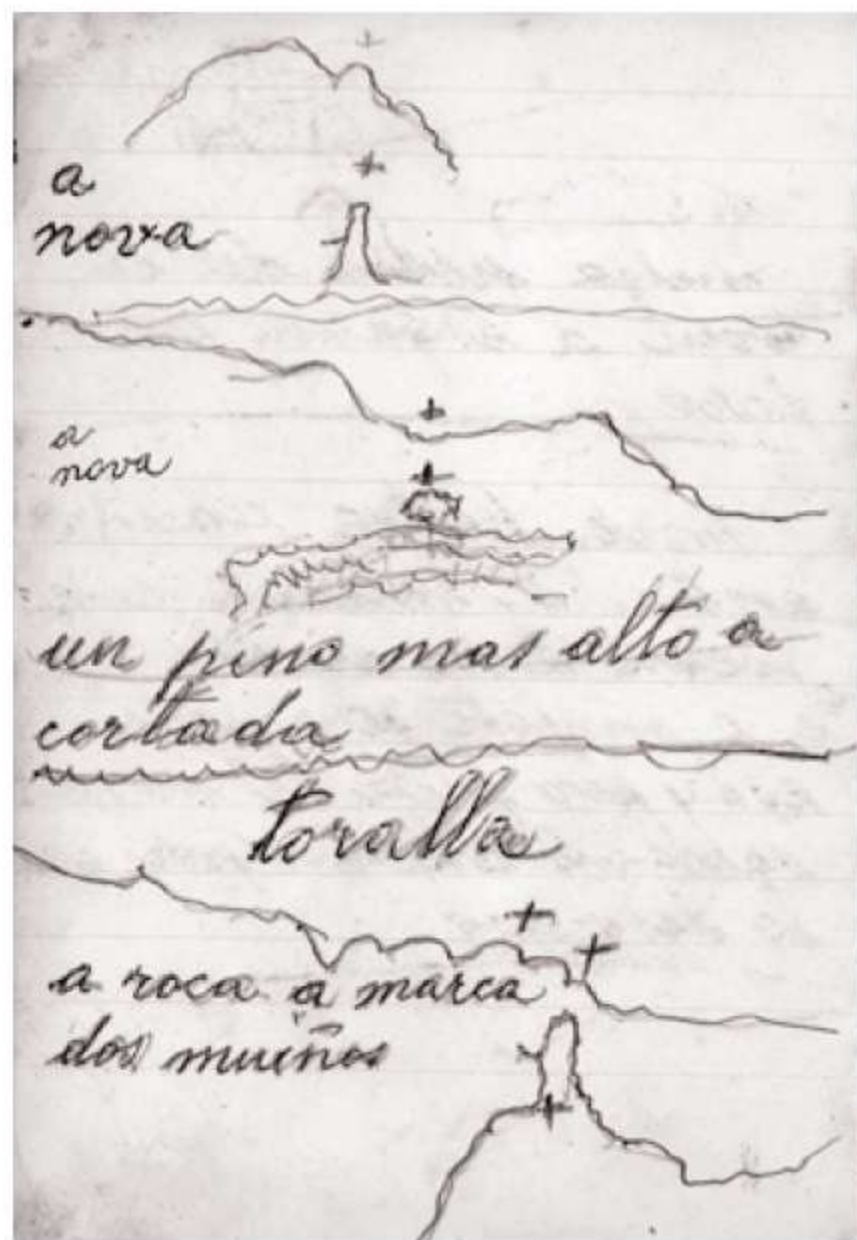 a
nova
a
nova
un pino mas alto a
cortada
toralla
a roca a marca
dos muiños